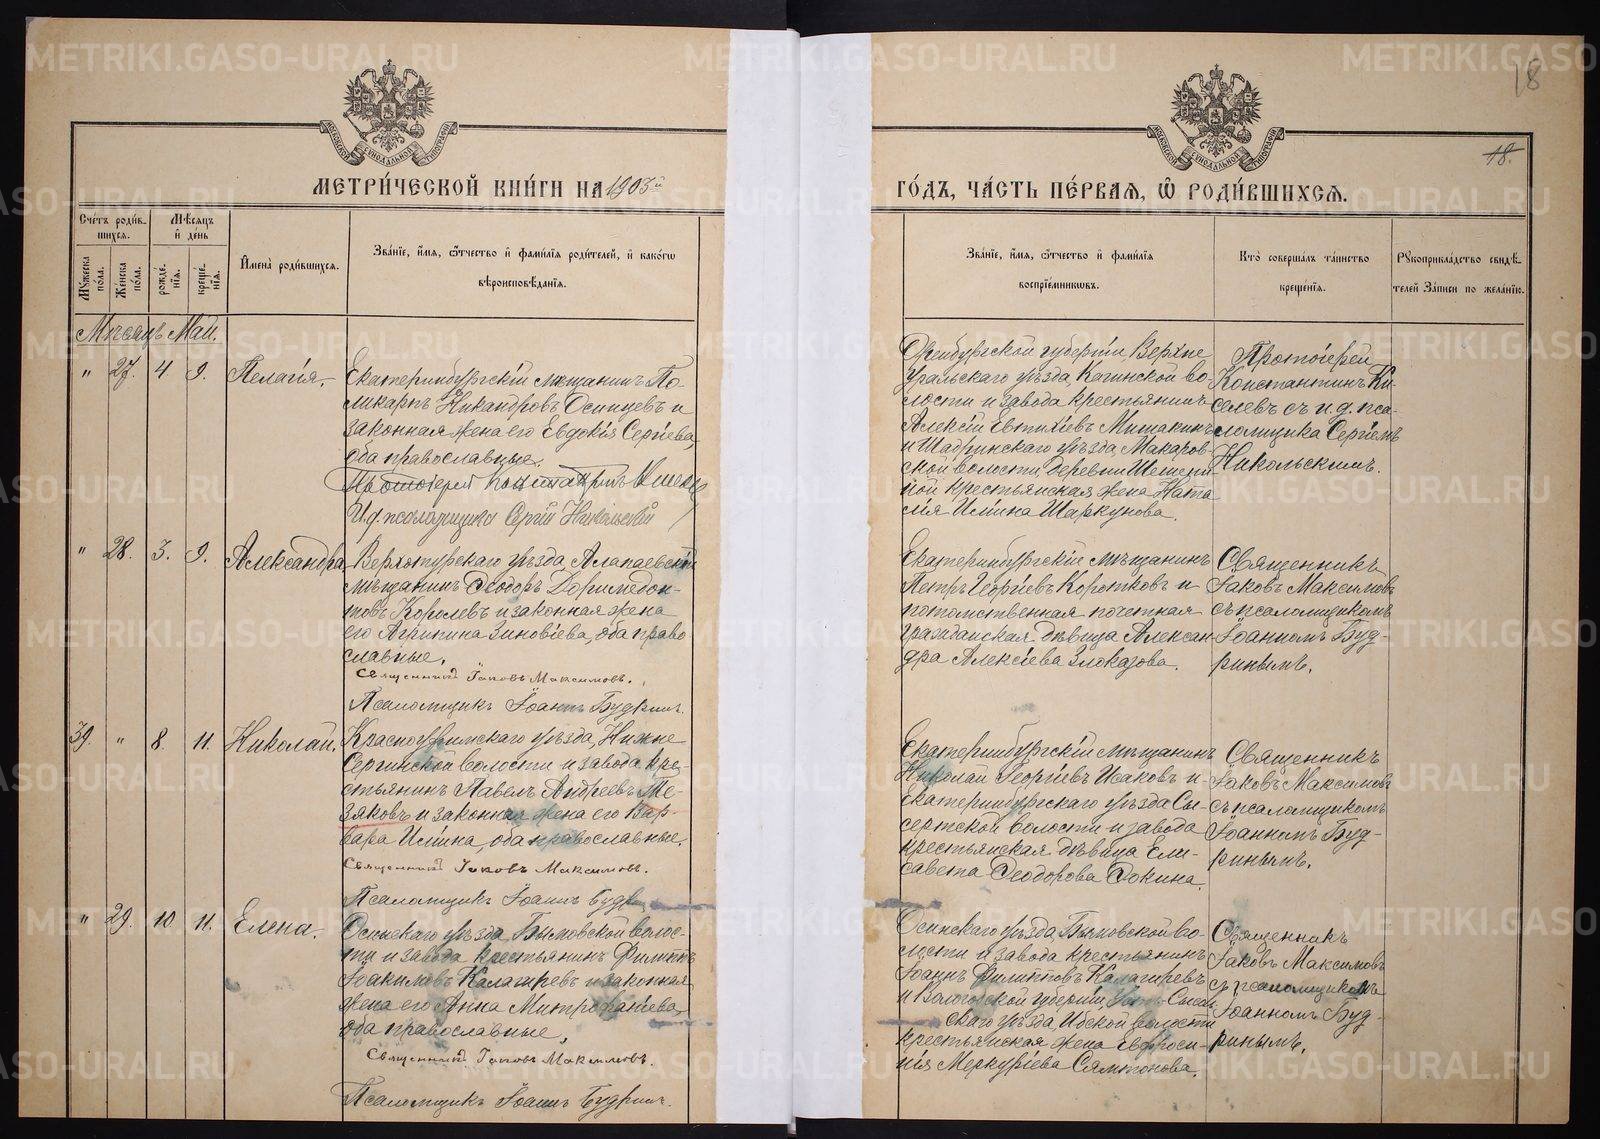 18
18.
МОСКОВСКОЙ СѴНОДАЛЬНОЙ ТИПОГРАФІИ
МОСКОВСКОЙ СѴНОДАЛЬНОЙ ТИПОГРАФІИ
МЕТРИ́ЧЕСКОЙ КНИ́ГИ НА 1903й
ГО́ДЪ, ЧА́СТЬ ПЕ́РВАЯ, Ѡ҆ РОДИ́ВШИХСЯ.
Сче́тъ роди́в-
шихся.
Му́жеска по́ла.
Же́нска по́ла.
Мѣ́сяцъ и҆ де́нь
рожде́-
нїя.
креще́-
нїя.
И҆мена̀ роди́вшихся.
Зва́нїе, и҆́мя, ѻ҆́тчество и҆ фами́лїя роди́телей, и҆ како́гѡ
вѣроисповѣ́данїя.
Зва́нїе, и҆́мя, ѻ҆́тчество и҆ фами́лїя
воспрїе́мниковъ.
Кто̀ соверша́лъ та́инство
креще́нїя.
Рꙋкоприкла́дство свидѣ́-
телей За́писи по жела́нїю.
Мѣсяцъ Май.
" 27. 4 9. Пелагія,
Екатеринбургскій мѣщанинъ По-
ликарпъ Никандровъ Осинцевъ и
законная жена его Евдокія Сергіева,
оба православные.
Протоіерей Константинъ
И.д. псаломщика Сергій Никольскій
Оренбургской губерніи Верхне
Уральскаго уѣзда, Кагинской во-
лости и завода крестьянинъ
Алексій Евтихіевъ Мишакинъ
и Шадринскаго уѣзда, Макаров-
ской волости деревни
крестьянская жена Ната
лія Илiина Шаркунова.
Протоіерей
Константинъ Ки-
селевъ съ и.д. пса-
ломщика Сергіемъ
Никольскимъ.
" 28. 3. 9. Александра
Верхотурскаго уѣзда, Алапаевскій
мѣщанинъ Ѳеодоръ Доримедон-
товъ Королевъ и законная жена
его Агрипина Зиновіева, оба право
славные.
Священникъ Іаковъ Максимовъ.
Псаломщикъ Іоаннъ Будринъ.
Екатеринбургскій мѣщанинъ
Петръ Георгіевъ Коротковъ и
потомственная почетная
гражданская дѣвица Алексан-
дра Алексіева Злоказова.
Священникъ
Іаковъ Максимовъ
съ псаломщикомъ
Іоанномъ Буд-
ринымъ.
39. " 8. 11. Николай.
Красноуфимскаго уѣзда, Нижне
Сергинской волости и завода кре-
стьянинъ Павелъ Андреевъ Те-
зяковъ и законная жена его Вар-
вара Илiина, оба православные.
Священникъ Іаковъ Максимовъ.
Псаломщикъ Іоаннъ Будринъ
Екатеринбургскій мѣщанинъ
Николай Георгіевъ Исаковъ и
Екатеринбургскаго уѣзда Сы-
сертской волости и завода
крестьянская дѣвица Ели-
савета Ѳеодорова Ѳокина.
Священникъ
Іаковъ Максимовъ
съ псаломщикомъ
Іоанномъ Буд-
ринымъ.
" 29. 10 11. Елена.
Осинскаго уѣзда, Бымовской волос-
ти и завода крестьянинъ Филиппъ
Іоакимовъ Калагиревъ и законная
жена его Анна Митрофаніева,
оба православные,
Священникъ Іаковъ Максимовъ.
Псаломщикъ Іоаннъ Будринъ.
Осинскаго уѣзда, Бымовской во-
лости и завода крестьянинъ
Іоаннъ Филипповъ Калагиревъ
и Вологодской губерніи Усть-Сысоль-
скаго уѣзда, Ибской волости
крестьянская жена Евфроси-
нія Меркуріева
Священникъ
Іаковъ Максимовъ
съ псаломщикомъ
Іоанномъ Буд-
ринымъ.
METRIKI.GASO-URAL.RU